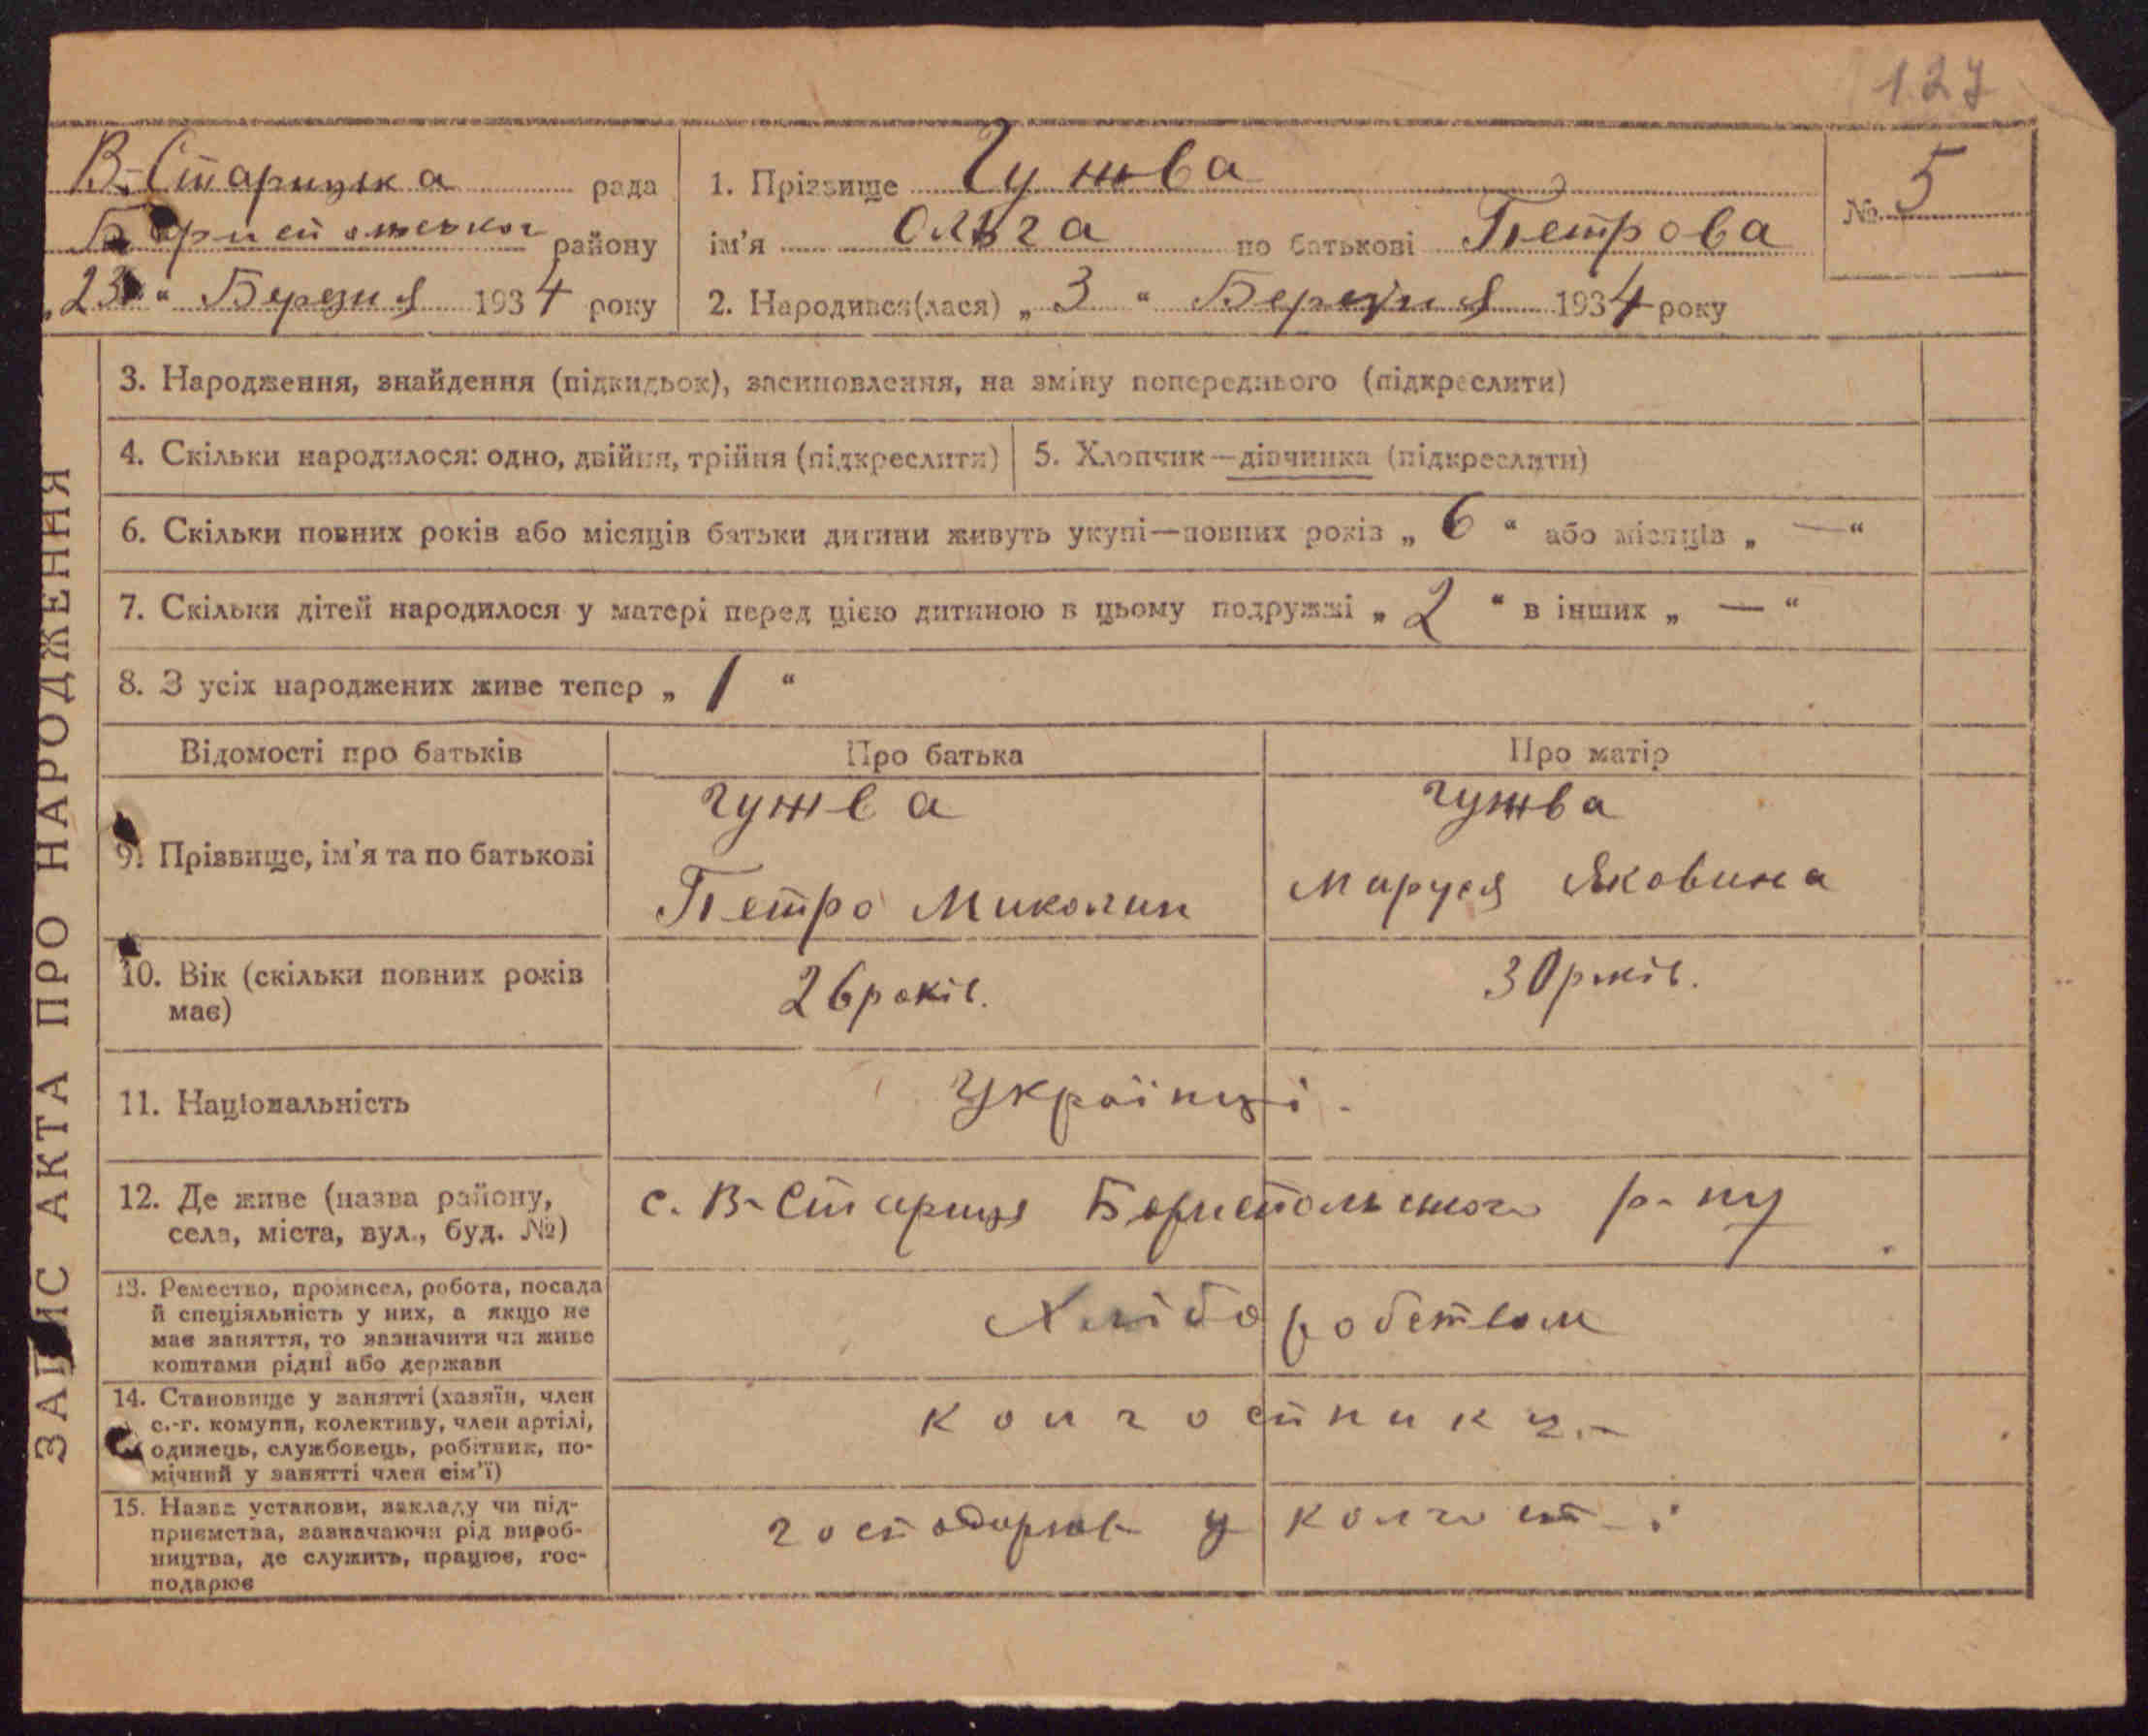 127
В-Старицька рада
Бориспольського району
„23“ Березня 1934 року
1. Прізвище Гужва
ім'я Ольга по батькові Петрова
2. Народився(лася) „3“ Березня 1934 року
№ 5
ЗАПИС АКТА ПРО НАРОДЖЕННЯ
3. Народження, знайдення (підкидьок), засиновлення, на зміну попереднього (підкреслити)
4. Скільки народилося: одно, двійня, трійня (підкреслити)
5. Хлопчик—дівчинка (підкреслити)
6. Скільки повних років або місяців батьки дитини живуть укупі—повних років „6“ або місяців „—“
7. Скільки дітей народилося у матері перед цією дитиною в цьому подружжі „2“ в інших „—“
8. З усіх народжених живе тепер „1“
Відомості про батьків
Про батька
Про матір
9. Прізвище, ім'я та по батькові
гужва
Петро Миколин
гужва
Маруся Яковина
10. Вік (скільки повних років
має)
26 років.
30 років.
11. Національність
Українці.
12. Де живе (назва району,
села, міста, вул., буд. №)
с. В-Стариця Бориспольського р-ну
13. Ремество, промисел, робота, посада
й спеціяльність у них, а якщо не
має заняття, то зазначити чи живе
коштами рідні або держави
Хлібо
14. Становище у занятті (хазяїн, член
с.-г. комуни, колективу, член артілі,
одинець, службовець, робітник, по-
мічний у занятті член сім'ї)
15. Назва установи, закладу чи під-
приємства, зазначаючи рід вироб-
ництва, де служить, працює, гос-
подарює
у